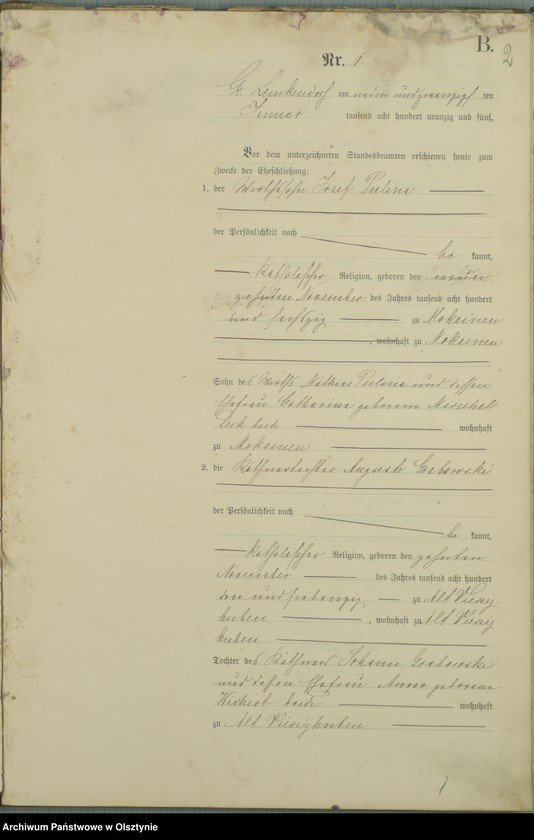 B.
2
Nr. 1
Gr. Lemkendorf am neun und zwanzigsten
Januar tausend acht hundert neunzig und fünf.
Vor dem unterzeichneten Standesbeamten erschienen heute zum
Zwecke der Eheschließung:
1. der Wirthssohn Josef
der Persönlichkeit nach
be kannt,
katholischer Religion, geboren den
zehnten November des Jahres tausend acht hundert
und sechszig zu Mokainen
, wohnhaft zu Mokainen
Sohn des Wirths und dessen
Ehefrau Catharina geborene
beide wohnhaft
zu Mokainen
2. die Käthnertochter Auguste Grabowski
der Persönlichkeit nach
be kannt,
katholischer Religion, geboren den zehnten
November des Jahres tausend acht hundert
und siebenzig zu Alt Vierzig
huben , wohnhaft zu Alt Vierzig
huben
Tochter des Käthners Johann Grabowski
und dessen Ehefrau Anna geborene
beide wohnhaft
zu Alt Vierzighuben
Archiwum Państwowe w Olsztynie